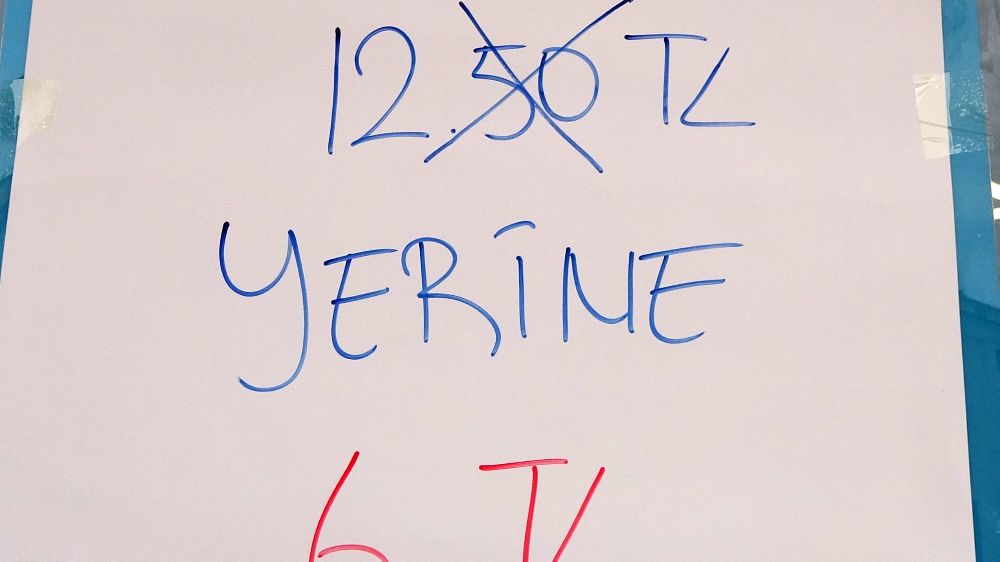 12.50 TL
YERİNE
6 TL